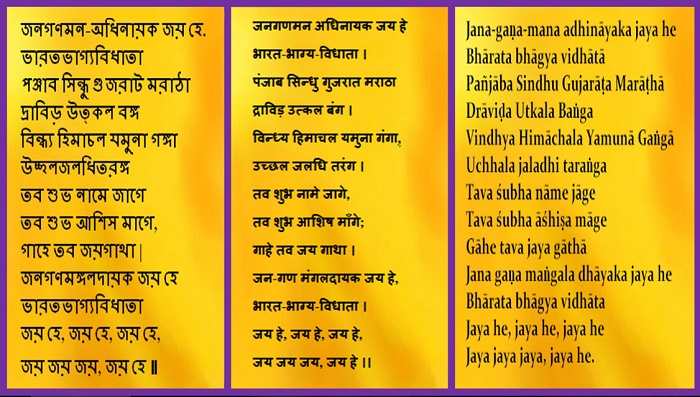 জনগণমন-অধিনায়ক জয় হে.
ভারতভাগ্যবিধাতা
পঞ্জাব সিন্ধু গুজরাট মরাঠা
দ্রাবিড় উত্কল বঙ্গ
বিন্ধ্য হিমাচল যমুনা গঙ্গা
উচ্ছলজলধিতরঙ্গ
তব শুভ নামে জাগে
তব শুভ আশিস মাগে,
গাহে তব জয়গাথা|
জনগণমঙ্গলদায়ক জয় হে
ভারতভাগ্যবিধাতা
জয় হে, জয় হে, জয় হে,
জয় জয় জয়, জয় হে॥
जनगणमन अधिनायक जय हे
भारत-भाग्य-विधाता ।
पंजाब सिन्धु गुजरात मराठा
द्राविड़ उत्कल बंग ।
विन्ध्य हिमाचल यमुना गंगा,
उच्छल जलधि तरंग ।
तव शुभ नामे जागे,
तव शुभ आशिष माँगे;
गाहे तव जय गाथा ।
जन-गण मंगलदायक जय हे,
भारत-भाग्य-विधाता ।
जय हे, जय हे, जय हे,
जय जय जय, जय हे ।।
Jana-gaṇa-mana adhināyaka jaya he
Bhārata bhāgya vidhātā
Pañjāba Sindhu Gujarāṭa Marāṭhā
Drāviḍa Utkala Baṅga
Vindhya Himāchala Yamunā Gaṅgā
Uchhala jaladhi taraṅga
Tava śubha nāme jāge
Tava śubha āśhiṣa māge
Gāhe tava jaya gāthā
Jana gaṇa maṅgala dhāyaka jaya he
Bhārata bhāgya vidhāta
Jaya he, jaya he, jaya he
Jaya jaya jaya, jaya he.